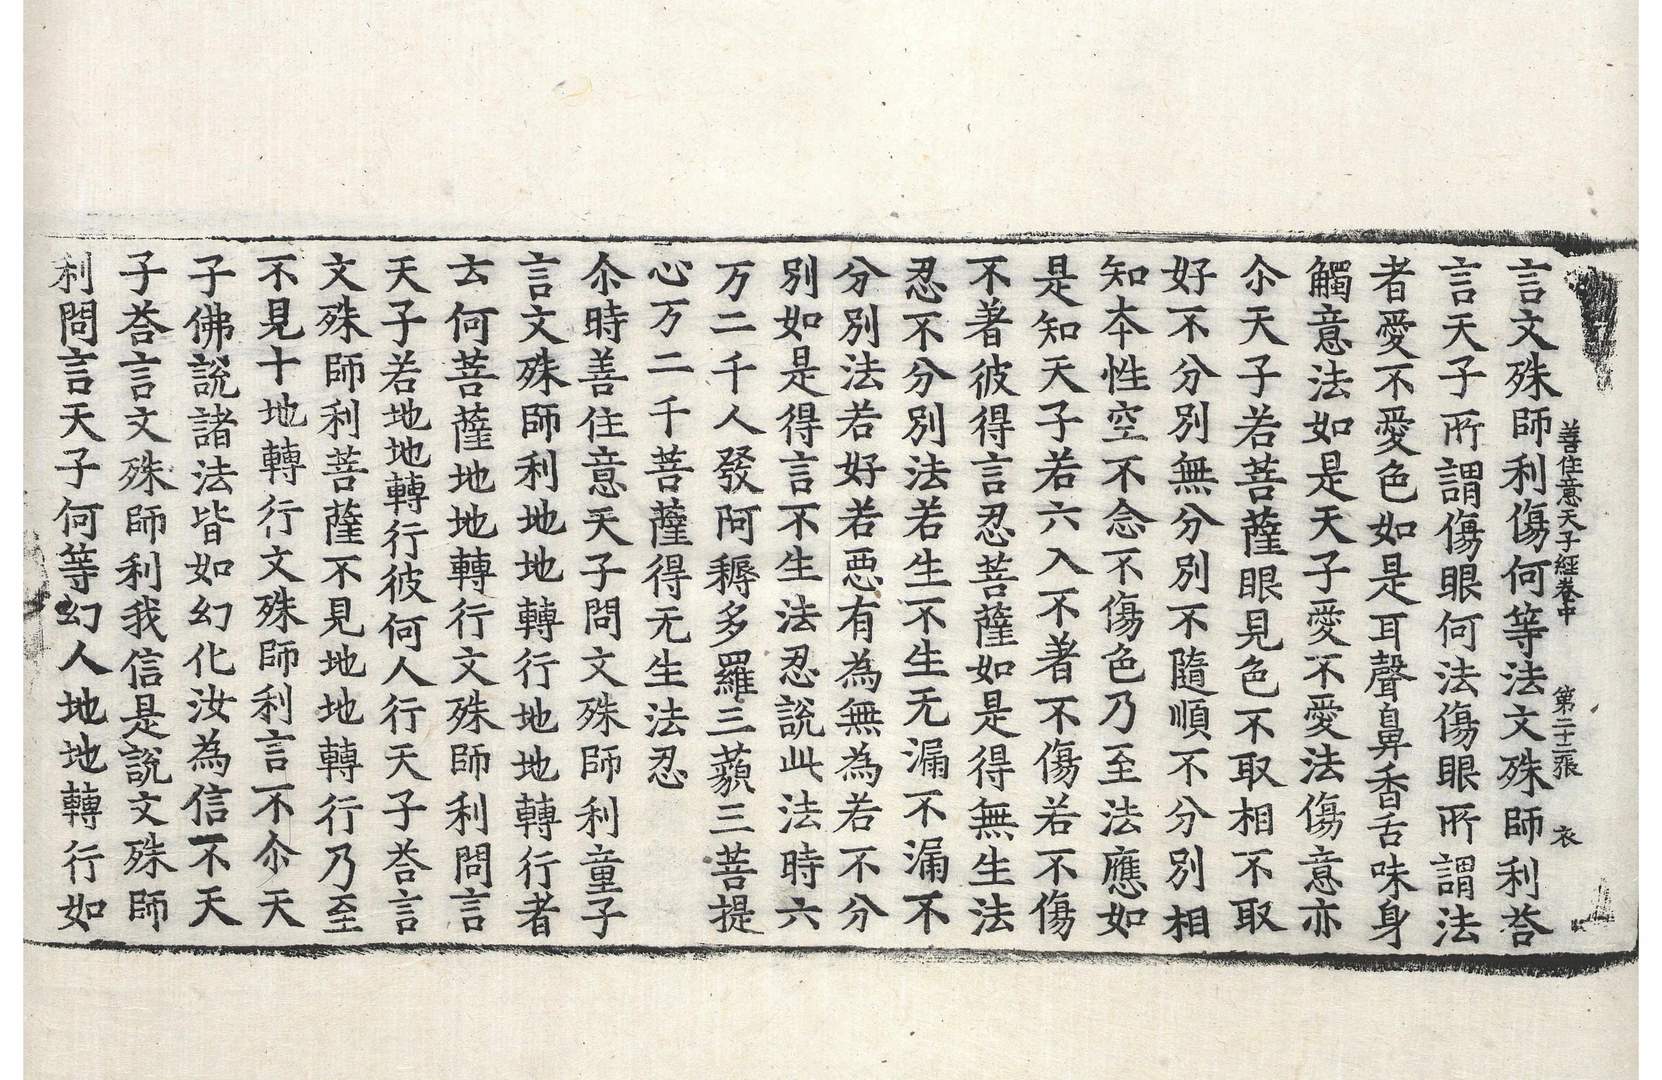 善住意天子經卷中 第二十二張 衣
言文殊師利傷何等法文殊師利荅
言天子所謂傷眼何法傷眼所謂法
者愛不愛色如是耳聲鼻香舌味身
觸意法如是天子愛不愛法傷意亦
尒天子若菩薩眼見色不取相不取
好不分別無分別不隨順不分別相
知本性空不念不傷色乃至法應如
是知天子若六入不著不傷若不傷
不著彼得言忍菩薩如是得無生法
忍不分別法若生不生无漏不漏不
分別法若好若惡有為無為若不分
別如是得言不生法忍說此法時六
万二千人發阿耨多羅三藐三菩提
心万二千菩薩得无生法忍
尒時善住意天子問文殊師利童子
言文殊師利地地轉行地地轉行者
去何菩薩地地轉行文殊師利問言
天子若地地轉行彼何人行天子荅言
文殊師利菩薩不見地地轉行乃至
不見十地轉行文殊師利言不尒天
子佛說諸法皆如幻化汝為信不天
子荅言文殊師利我信是說文殊師
利問言天子何等幻人地地轉行如